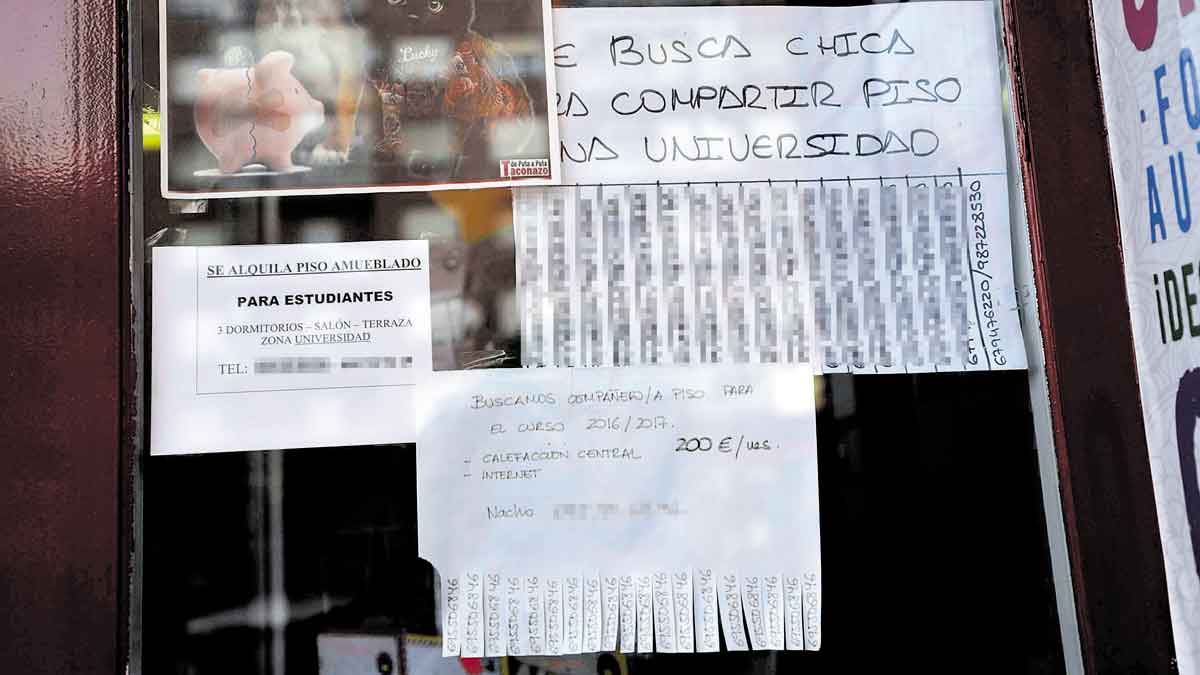 Lucky
de Pata a Pata
Taconazo
E BUSCA CHICA
RA COMPARTIR PISO
NA UNIVERSIDAD
679476220/987228530
SE ALQUILA PISO AMUEBLADO
PARA ESTUDIANTES
3 DORMITORIOS – SALÓN – TERRAZA
ZONA UNIVERSIDAD
TEL:
BUSCAMOS COMPAÑERO/A PISO PARA
EL CURSO 2016/2017.
- CALEFACCIÓN CENTRAL 200 €/MES.
- INTERNET
Nacho
FO
AU
¡DE